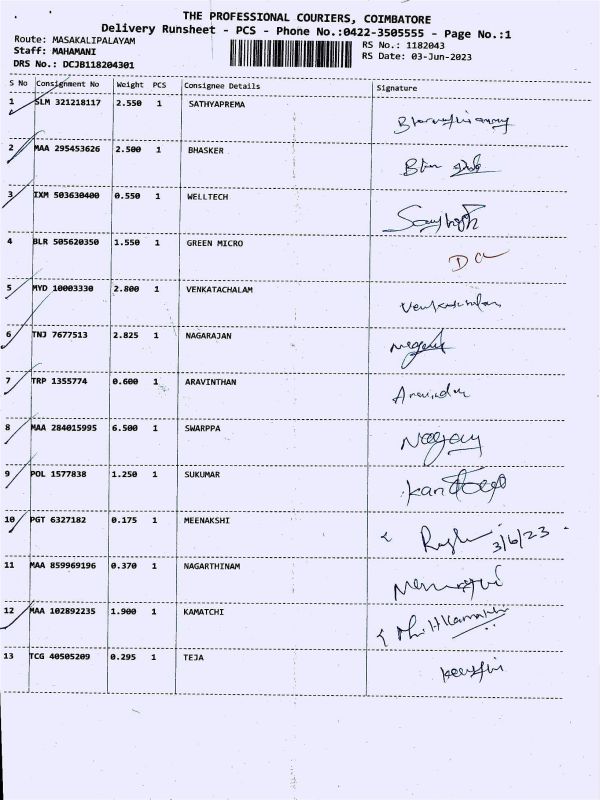 THE PROFESSIONAL COURIERS, COIMBATORE
Delivery Runsheet - PCS - Phone No.:0422-3505555 - Page No.:1
Route: MASAKALIPALAYAM
Staff: MAHAMANI
DRS No.: DCJB118204301
RS No.: 1182043
RS Date: 03-Jun-2023
S No Consignment No Weight PCS Consignee Details Signature
1 SLM 321218117 2.550 1 SATHYAPREMA
2 MAA 295453626 2.500 1 BHASKER
3 IXM 503630400 0.550 1 WELLTECH
4 BLR 505620350 1.550 1 GREEN MICRO
5 MYD 10003330 2.800 1 VENKATACHALAM
6 TNJ 7677513 2.825 1 NAGARAJAN
7 TRP 1355774 0.600 1 ARAVINTHAN
8 MAA 284015995 6.500 1 SWARPPA
9 POL 1577838 1.250 1 SUKUMAR
10 PGT 6327182 0.175 1 MEENAKSHI 3/6/23
11 MAA 859969196 0.370 1 NAGARTHINAM
12 MAA 102892235 1.900 1 KAMATCHI
13 TCG 40505209 0.295 1 TEJA